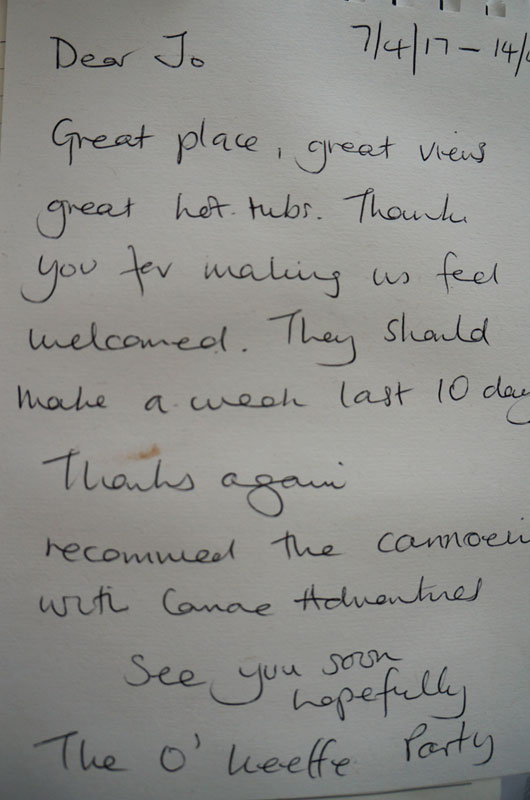 Dear Jo 7/4/17 - 14/
Great place, great views
great hot tubs. Thank
you for making us feel
welcomed. They should
make a week last 10 day
Thanks again
recommed the cannoei
with Canoe Adventures
See you soon
hopefully
The O'Keeffe Party